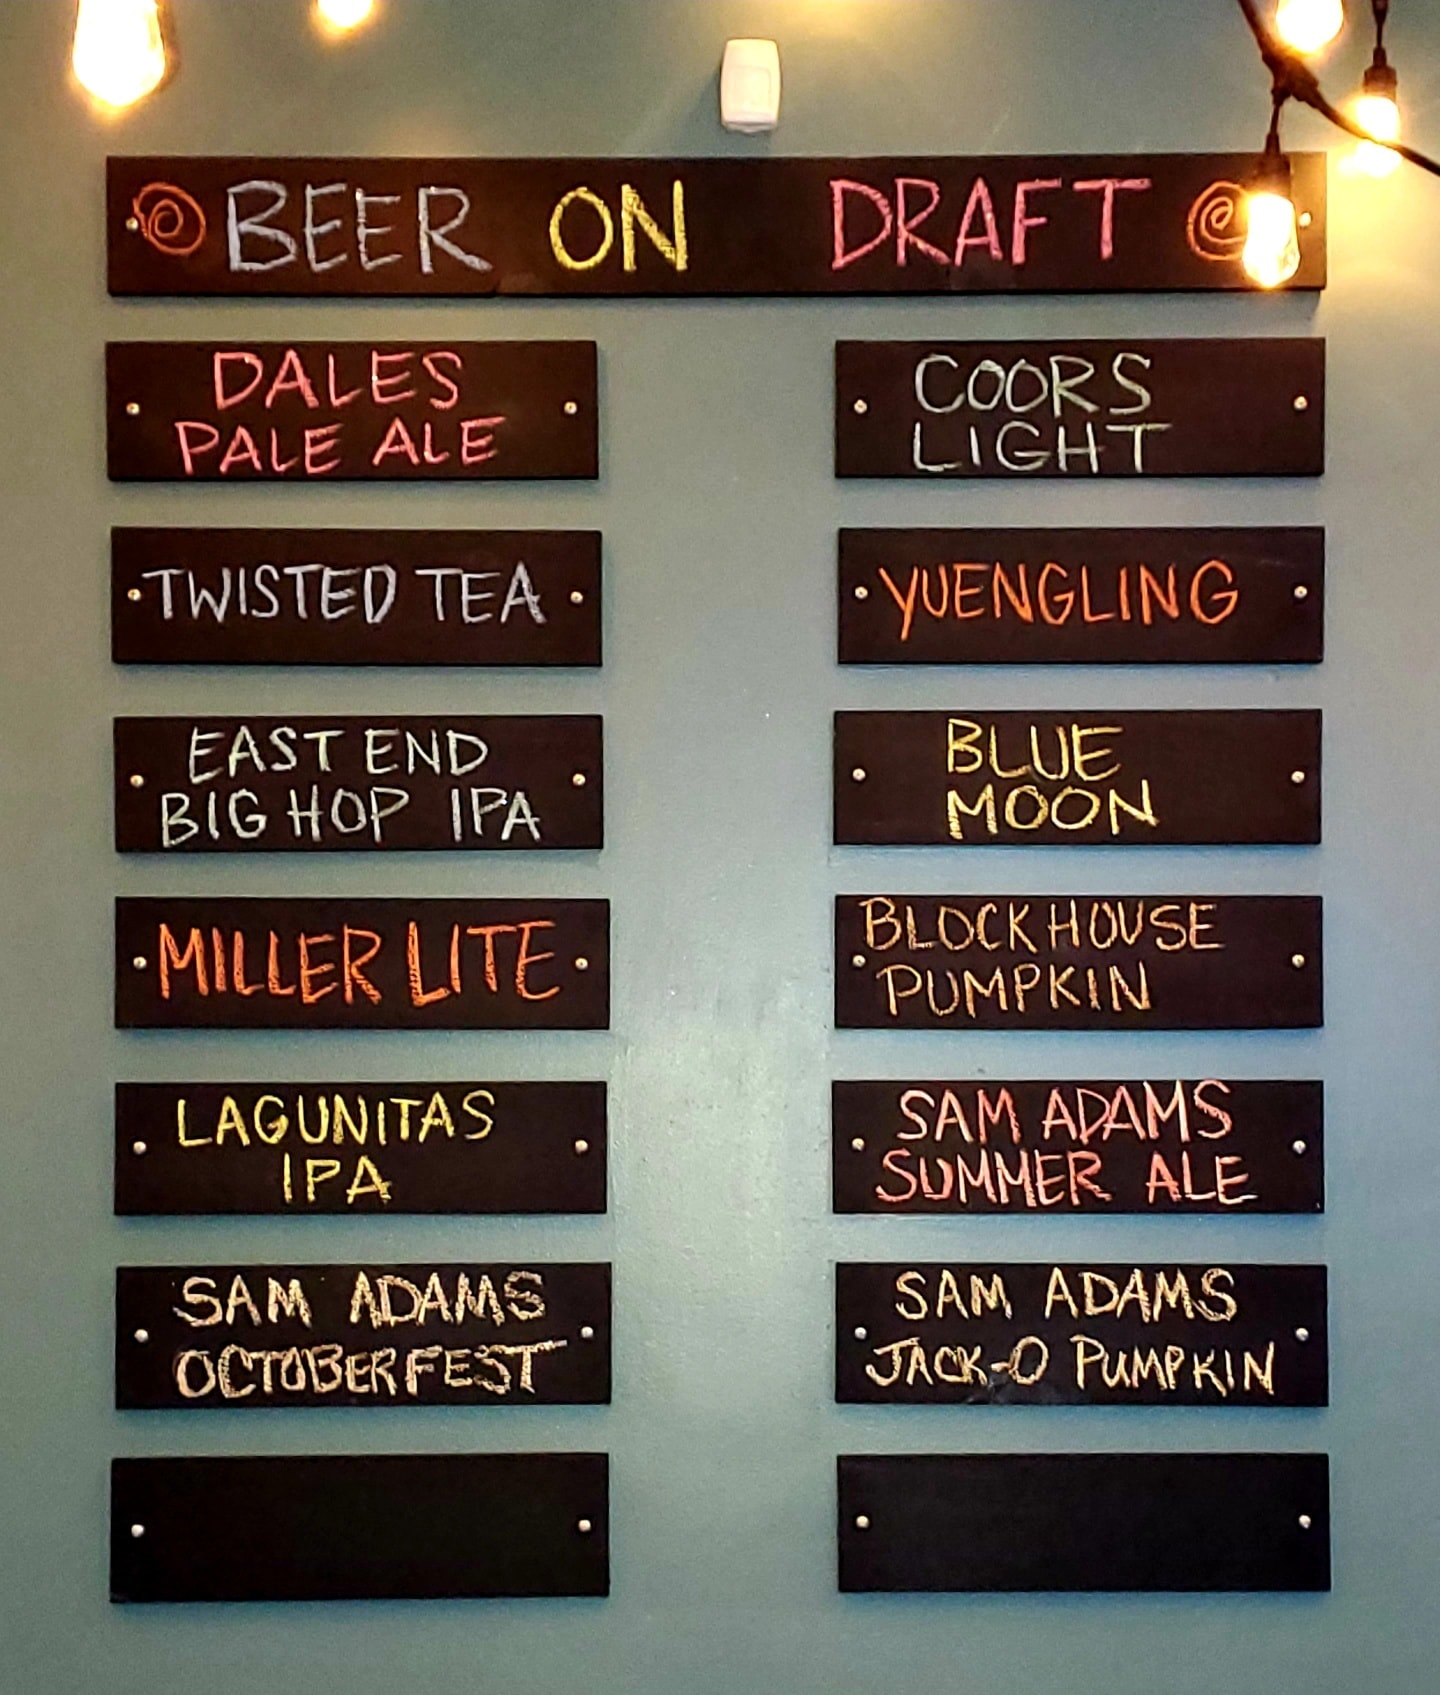 BEER ON DRAFT
DALES
PALE ALE
TWISTED TEA
EAST END
BIG HOP IPA
MILLER LITE
LAGUNITAS
IPA
SAM ADAMS
OCTOBERFEST
COORS
LIGHT
YUENGLING
BLUE
MOON
BLOCKHOUSE
PUMPKIN
SAM ADAMS
SUMMER ALE
SAM ADAMS
JACK-O PUMPKIN